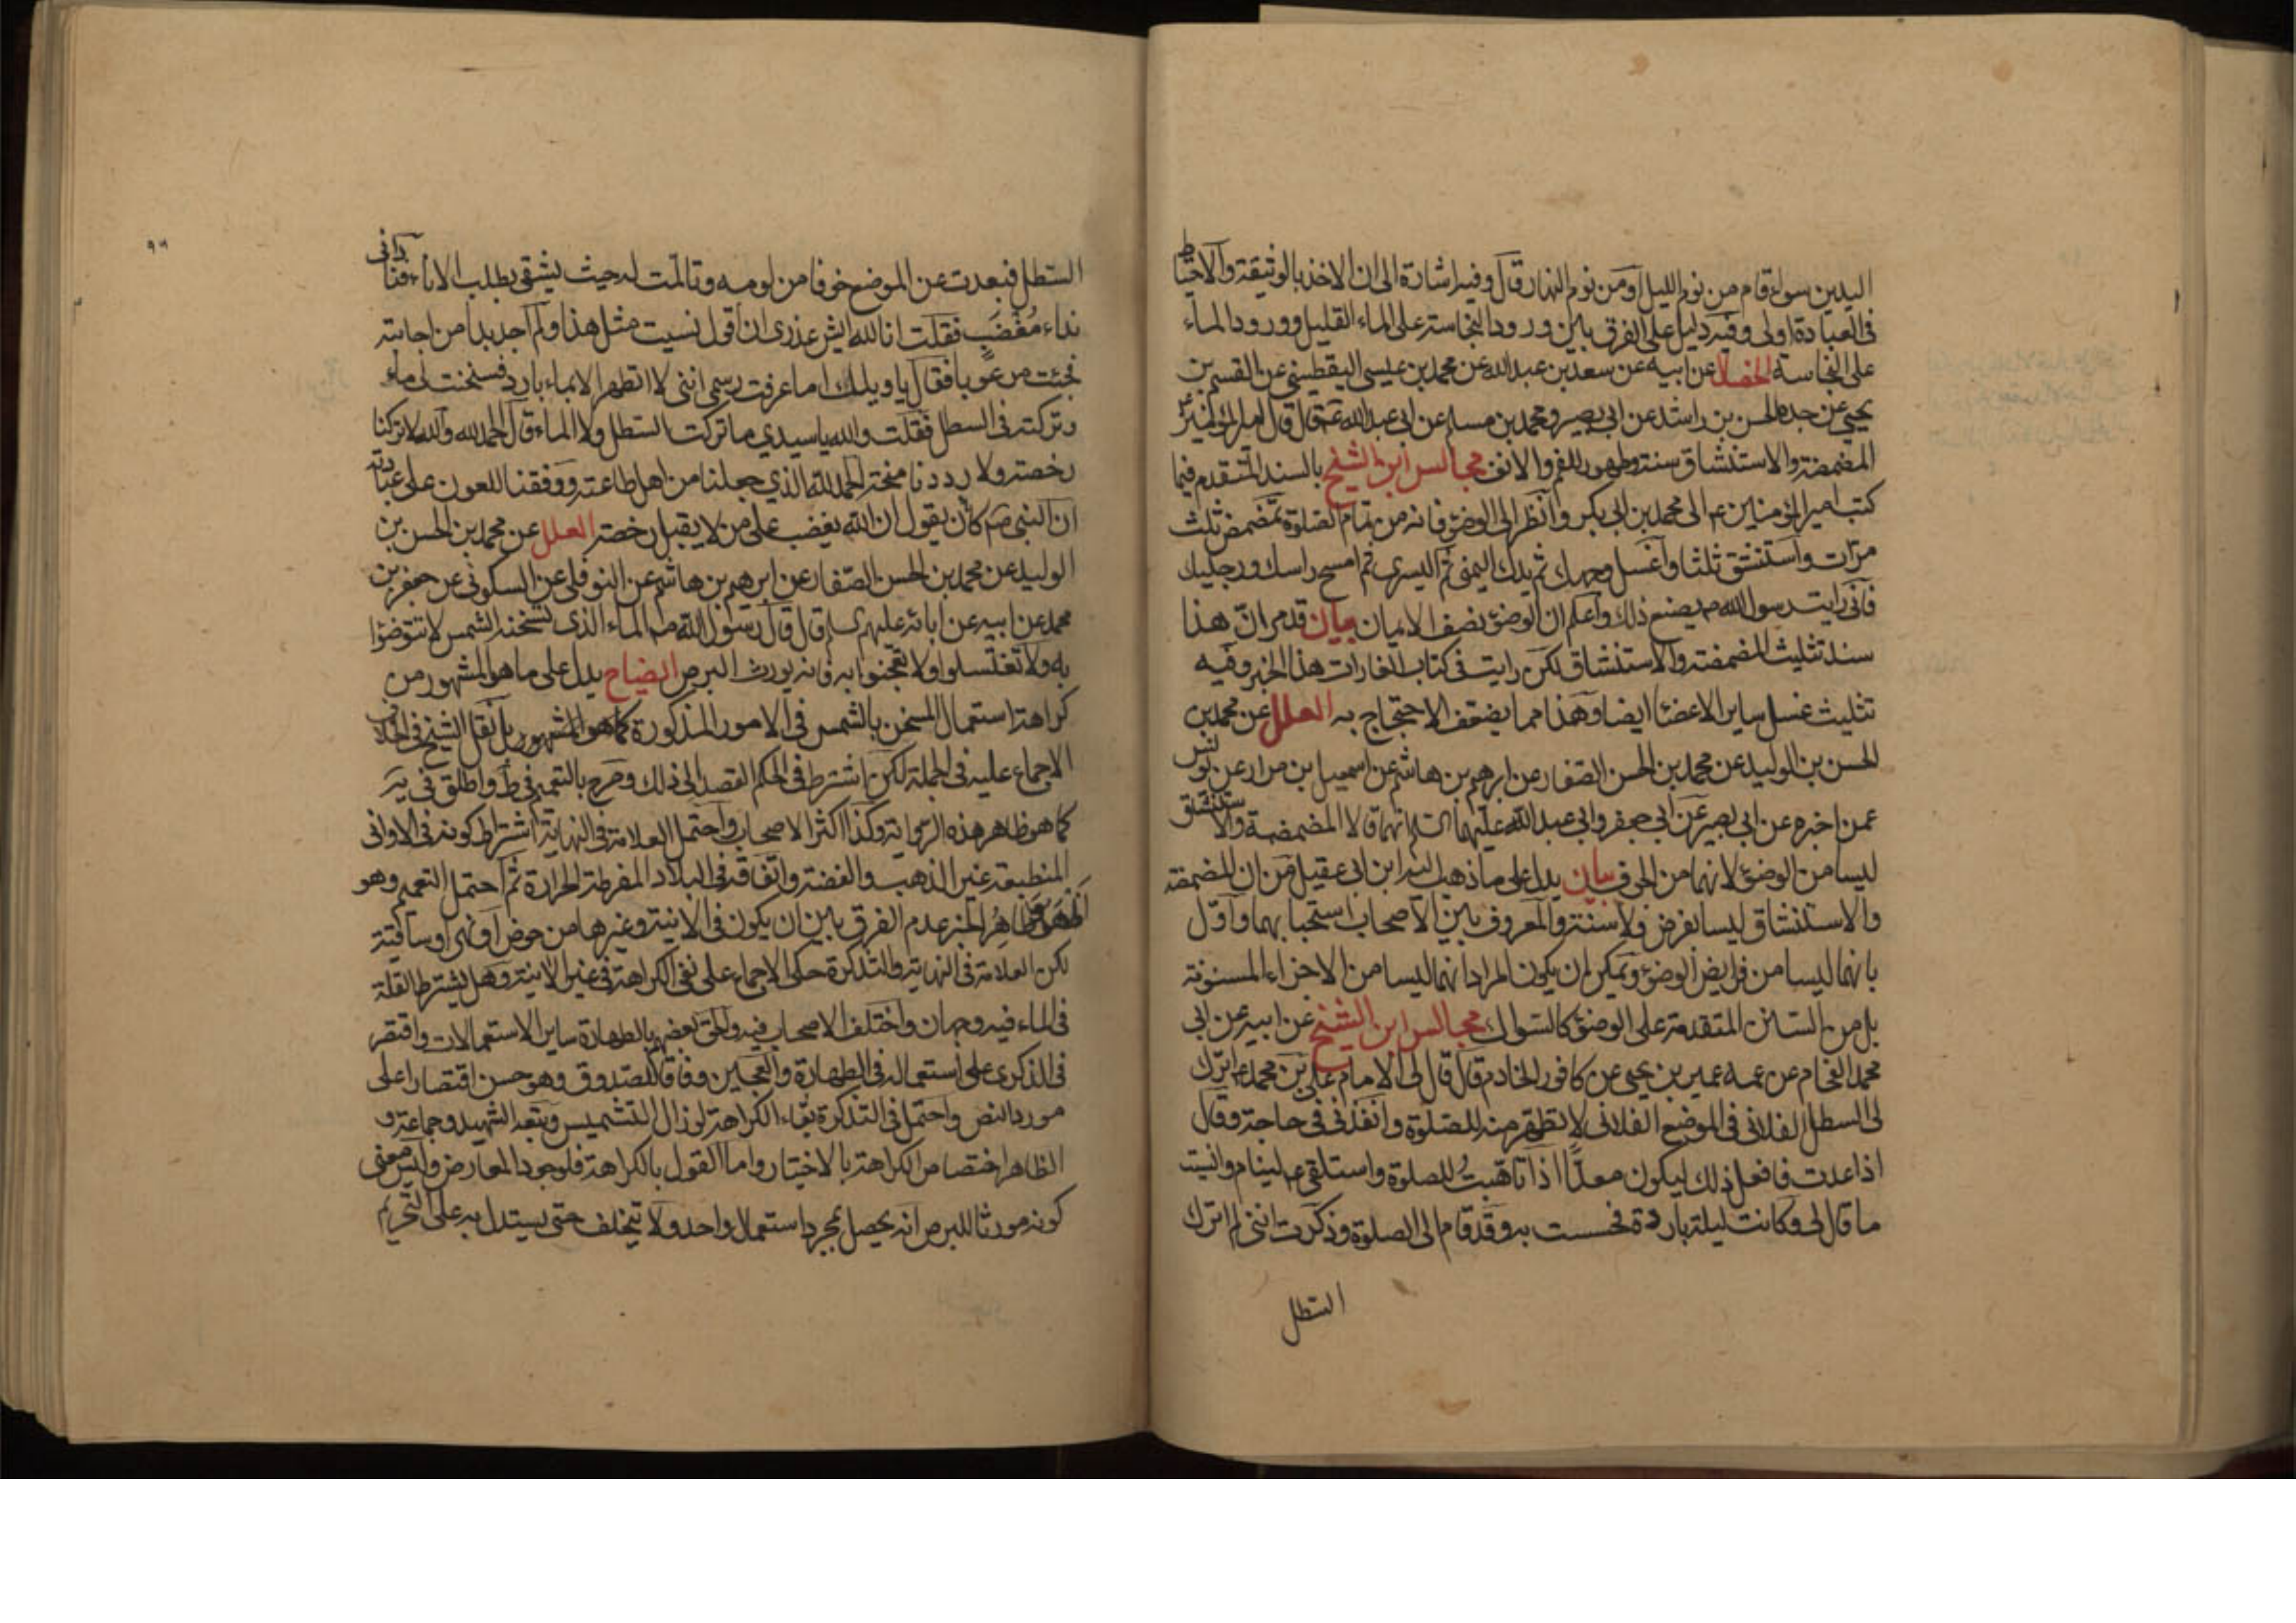 اليدين سواء قام من نوم الليل او من نوم النهار قال وفيه اشارة الى ان الاخذ بالوثيقة والاحتياط
فى العبادة اولى وفيه دليل على الفرق بين ورود النجاسة على الماء القليل وورود الماء
على النجاسة الخصال عن ابيه عن سعد بن عبد الله عن محمد بن عيسى اليقطينى عن القسم بن
يحيى عن جده الحسن بن راشد عن ابى بصير ومحمد بن مسلم عن ابى عبد الله ع قال قال امير المؤمنين ع
المضمضة والاستنشاق سنة وطهور للفم والانف مجالس ابن الشيخ بالسند المتقدم فيما
كتب امير المؤمنين ع الى محمد بن ابى بكر وانظر الى الوضوء فانه من تمام الصلوة تمضمض ثلث
مرات واستنشق ثلثا واغسل وجهك ثم يدك اليمنى ثم اليسرى ثم امسح راسك ورجليك
فانى رايت رسول الله ص يصنع ذلك واعلم ان الوضوء نصف الايمان بيان قد مر ان هذا
سند تثليث المضمضة والاستنشاق لكن رايت فى كتاب الغارات هذا الخبر وفيه
تثليث غسل ساير الاعضاء ايضا وهذا مما يضعف الاحتجاج به العلل عن محمد بن
الحسن بن الوليد عن محمد بن الحسن الصفار عن ابرهيم بن هاشم عن اسمعيل بن مرار عن يونس
عمن اخبره عن ابى بصير عن ابى جعفر وابى عبد الله عليهما السلم انهما قالا المضمضة والاستنشاق
ليسا من الوضوء لانهما من الجوف بيان يدل على ما ذهب اليه ابن ابى عقيل من ان المضمضة
والاستنشاق ليسا بفرض ولا سنة والمعروف بين الاصحاب استحبابهما واول
بانهما ليسا من فرايض الوضوء ويمكن ان يكون المراد انهما ليسا من الاجزاء المسنونة
بل من السنن المتقدمة على الوضوء كالسواك مجالس ابن الشيخ عن ابيه عن ابى
محمد الفحام عن عمه عمير بن يحيى عن كافور الخادم قال قال لى الامام على بن محمد ع اترك
لى السطل الفلانى فى الموضع الفلانى لاتطهر منه للصلوة وانفذنى فى حاجة وقال
اذا عدت فافعل ذلك ليكون معدا اذا تاهبت للصلوة واستلقى ع لينام وانسيت
ما قال لى وكانت ليلة باردة فحسست به وقد قام الى الصلوة وذكرت اننى لم اترك
السطل
السطل فبعدت عن الموضع خوفا من لومه وتالمت له حيث يشقى بطلب الاناء فنادانى
نداء مغضب فقلت انا لله ايش عذرى ان اقول نسيت مثل هذا ولم اجد بدا من اجابته
فجئت مرعوبا فقال يا ويلك اما عرفت رسمى اننى لا اتطهر الا بماء بارد فسخنت لى ماء
وتركته فى السطل فقلت والله يا سيدي ما تركت السطل ولا الماء قال الحمد لله والله لا تركنا
رخصة ولا رددنا منحة الحمد لله الذي جعلنا من اهل طاعته ووفقنا للعون على عبادته
ان النبى ص كان يقول ان الله يغضب على من لا يقبل رخصه العلل عن محمد بن الحسن بن
الوليد عن محمد بن الحسن الصفار عن ابرهيم بن هاشم عن النوفلى عن السكونى عن جعفر بن
محمد عن ابيه عن ابائه عليهم السلم قال قال رسول الله ص الماء الذى تسخنه الشمس لا تتوضؤا
به ولا تغتسلوا ولا تعجنوا به فانه يورث البرص ايضاح يدل على ما هو المشهور من
كراهة استعمال المسخن بالشمس فى الامور المذكورة كما هو المشهور بل نقل الشيخ فى الخلاف
الاجماع عليه فى الجملة لكن اشترط فى الحكم القصد الى ذلك وصرح بالتعميم فى ط واطلق فى يه
كما هو ظاهر هذه الرواية وكذا اكثر الاصحاب واحتمل العلامة فى النهاية اشتراط كونه فى الاوانى
المنطبعة غير الذهب والفضة واتفاقه فى البلاد المفرطة الحرارة ثم احتمل التعميم وهو
اظهر وظاهر الخبر عدم الفرق بين ان يكون فى الانية وغيرها من حوض او نهر او ساقية
لكن العلامة فى النهاية والتذكرة حكى الاجماع على نفى الكراهة فى غير الانية وهل يشترط القلة
فى الماء فيه وجهان واختلف الاصحاب فيه والحق بعضهم بالطهارة ساير الاستعمالات واقتصر
فى الذكرى على استعماله فى الطهارة والعجين وفاقا للصدوق وهو حسن اقتصارا على
مورد النص واحتمل فى التذكرة بقاء الكراهة لو زال التشميس وتبعه الشهيد وجماعة و
الظاهر اختصاص الكراهة بالاختيار واما القول بالكراهة فلوجود المعارض وليس معنى
كونه مورثا للبرص انه يحصل بمجرد استعمال واحد ولا يتخلف حتى يستدل به على التحريم